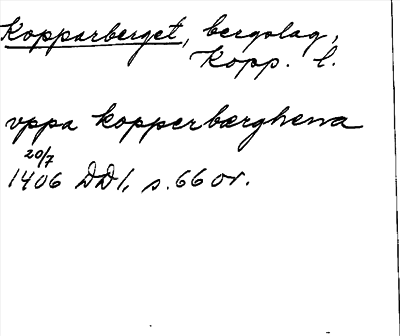 Kopparberget, bergslag,
Kopp. l.
vppa kopperbærghena
20/7
1406 DD1, s. 66 or.